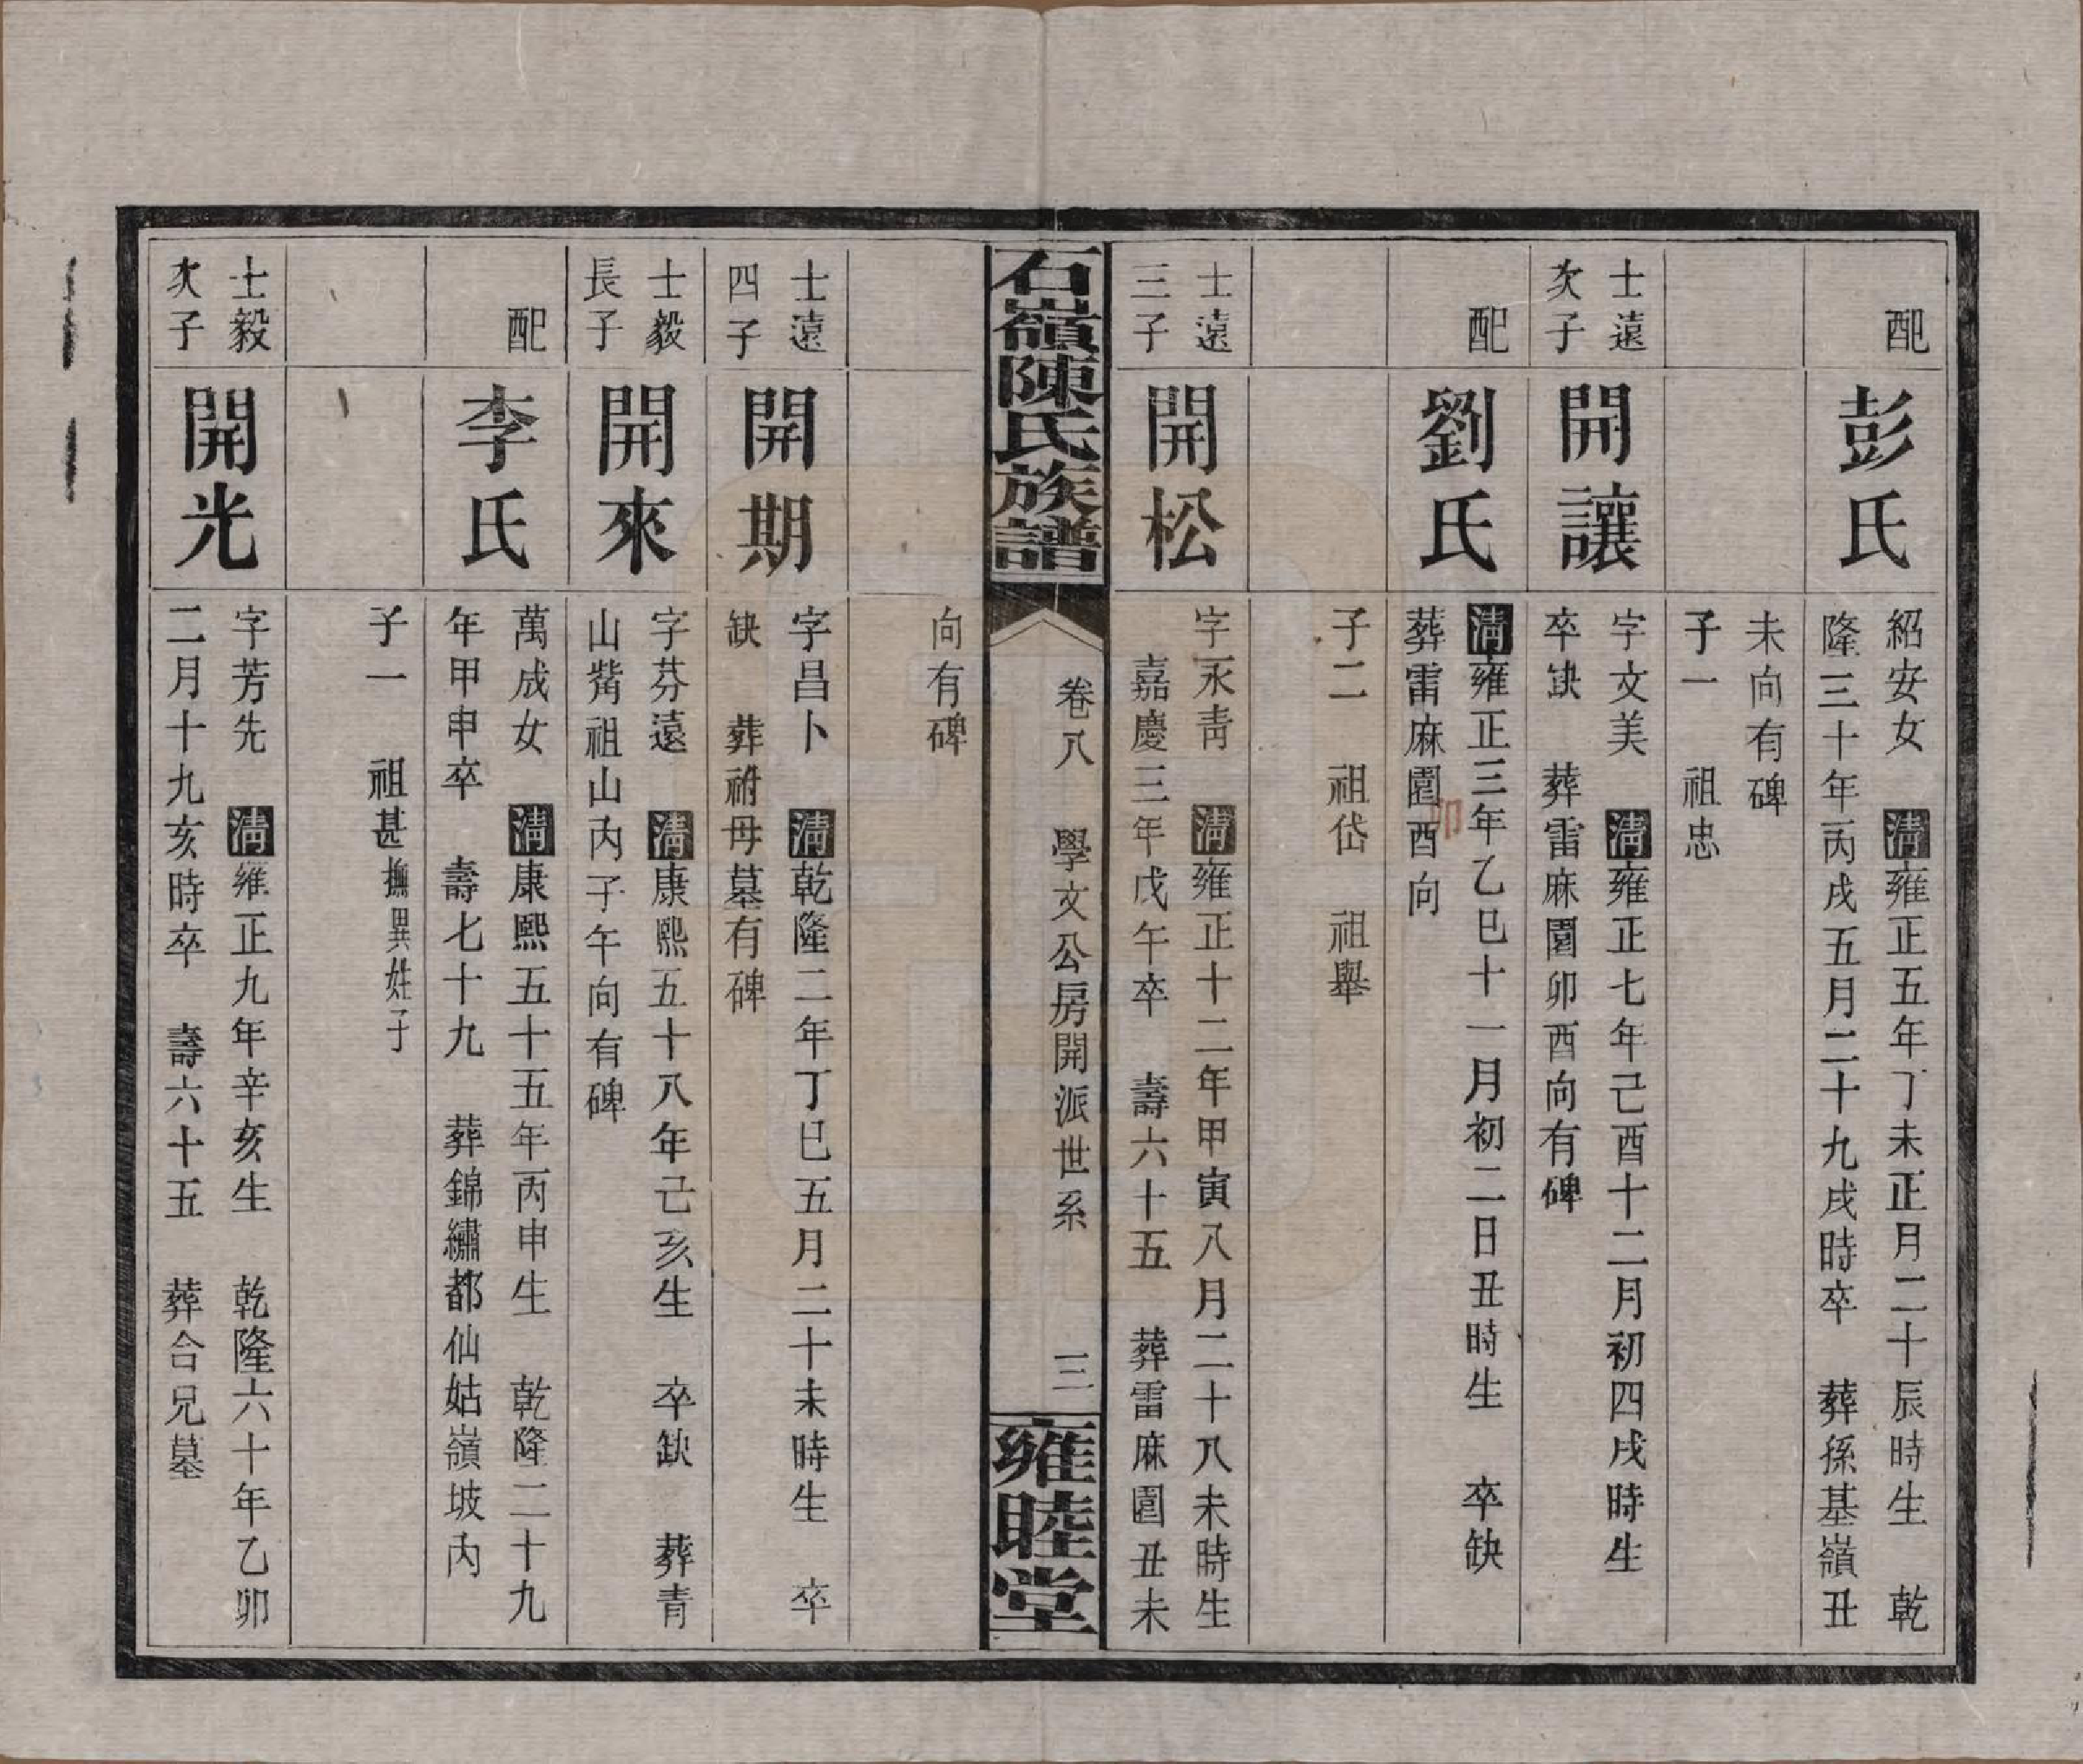 配
彭氏
紹安女　清雍正五年丁未正月二十辰時生　乾
隆三十年丙戌五月二十九戌時卒　葬孫基嶺丑
未向有碑
子一　祖忠
士遠
次子
開讓
字文美　清雍正七年己酉十二月初四戌時生
卒缺　葬雷麻園卯酉向有碑
配
劉氏
清雍正三年乙巳十一月初二日丑時生　卒缺
葬雷麻園酉向
卯
子二　祖岱　祖舉
士遠
三子
開松
字永青　清雍正十二年甲寅八月二十八未時生
嘉慶三年戊午卒　壽六十五　葬雷麻園丑未
石嶺陳氏族譜
卷八　學文公房開派世系
三
雍睦堂
向有碑
士遠
四子
開期
字昌卜　清乾隆二年丁巳五月二十未時生　卒
缺　葬祔母墓有碑
士毅
長子
開來
字芬遠　清康熙五十八年己亥生　卒缺　葬青
山觜祖山內子午向有碑
配
李氏
萬成女　清康熙五十五年丙申生　乾隆二十九
年甲申卒　壽七十九　葬錦繡都仙姑嶺坡內
子一　祖甚撫異姓子
士毅
次子
開光
字芳先　清雍正九年辛亥生　乾隆六十年乙卯
二月十九亥時卒　壽六十五　葬合兄墓